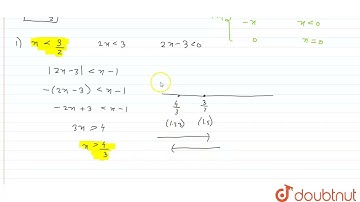 -x x<0
0 x=0
1) x < 3/2 2x<3 2x-3<0
|2x-3| < x-1
-(2x-3) < x-1
-2x+3 < x-1
3x > 4
x > 4/3
4/3 3/2
(1.33) (1.5)
doubtnut